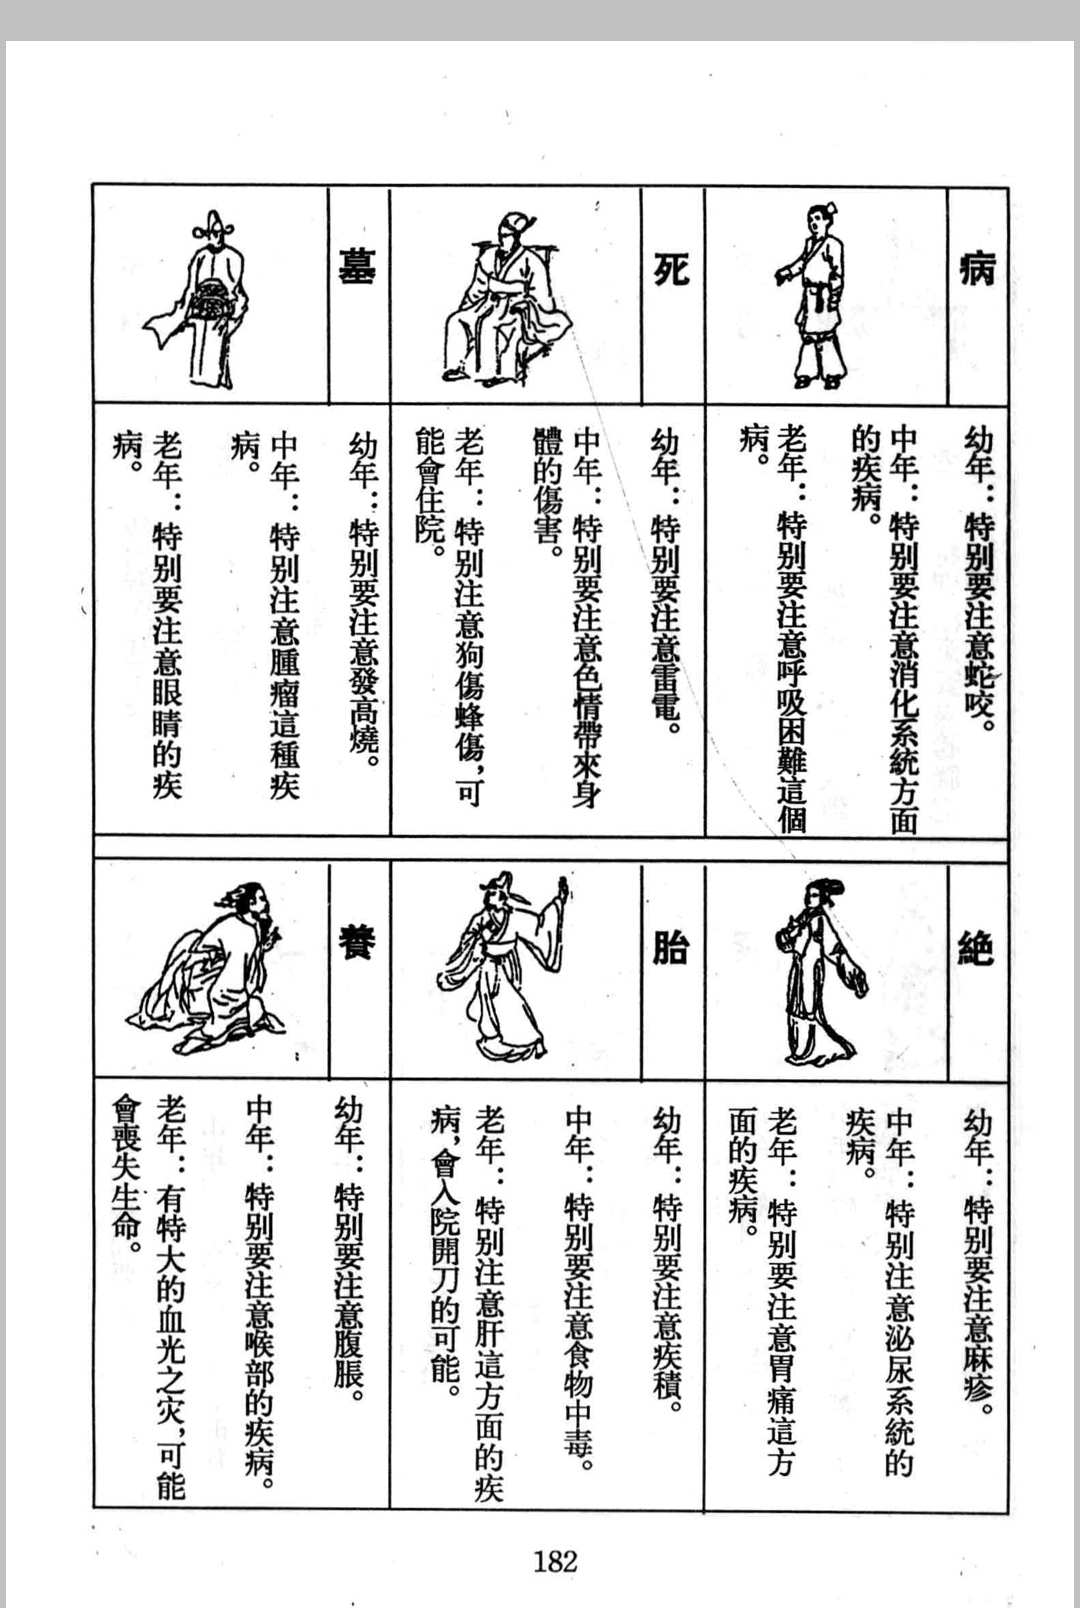 病
幼年：特別要注意蛇咬。
中年：特別要注意消化系統方面
的疾病。
老年：特別要注意呼吸困難這個
病。
死
幼年：特別要注意雷電。
中年：特別要注意色情帶來身
體的傷害。
老年：特別注意狗傷蜂傷，可
能會住院。
墓
幼年：特別要注意發高燒。
中年：特別注意腫瘤這種疾
病。
老年：特別要注意眼睛的疾
病。
絕
幼年：特別要注意麻疹。
中年：特別注意泌尿系統的
疾病。
老年：特別要注意胃痛這方
面的疾病。
胎
幼年：特別要注意疾積。
中年：特別要注意食物中毒。
老年：特別注意肝這方面的疾
病，會入院開刀的可能。
養
幼年：特別要注意腹脹。
中年：特別要注意喉部的疾病。
老年：有特大的血光之灾，可能
會喪失生命。
182